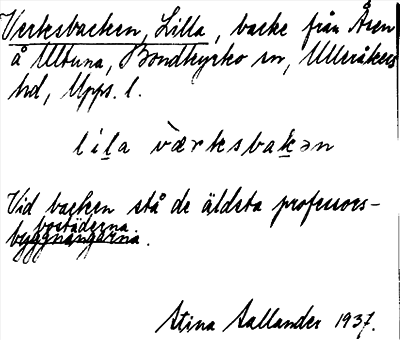 Verksbacken, Lilla, backe från Åsen
å Ultuna, Bondkyrko sn, Ulleråkers
hd, Upps. l.
lila værksbakən
Vid backen stå de äldsta professors-
bostäderna
byggnangarna.
Stina Sallander 1937.